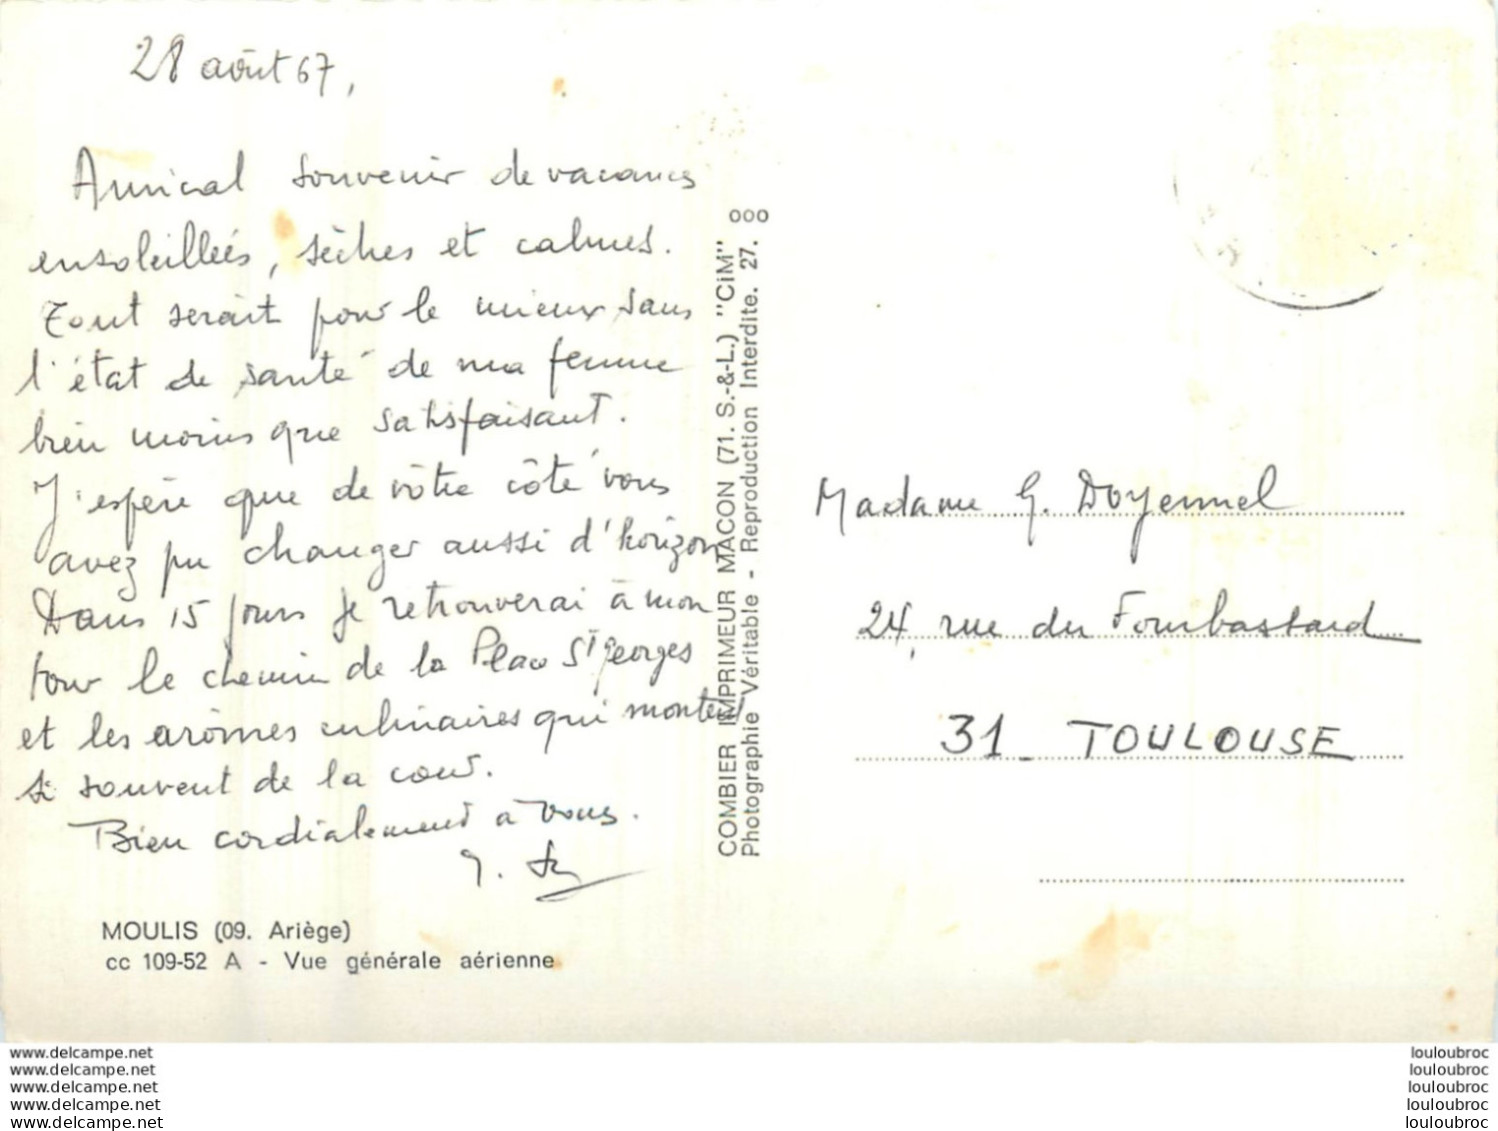 28 août 67,
Amical souvenir de vacances
ensoleillées, sèches et calmes.
Tout serait pour le mieux sans
l'état de santé de ma femme
bien moins que satisfaisant.
J'espère que de vôtre côté vous
avez pu changer aussi d'horizon
Dans 15 jours je retrouverai à mon
tour le chemin de la Place St georges
et les arômes culinaires qui montent
si souvent de la cour.
Bien cordialement à vous.
MOULIS (09. Ariège)
cc 109-52 A - Vue générale aérienne
COMBIER IMPRIMEUR MACON (71. S.-&-L.) "CiM"
Photographie Véritable - Reproduction Interdite. 27. ooo
Madame G. Doyennel
24, rue du Fourbastard
31 _ TOULOUSE
www.delcampe.net
www.delcampe.net
www.delcampe.net
www.delcampe.net
www.delcampe.net
louloubroc
louloubroc
louloubroc
louloubroc
louloubroc